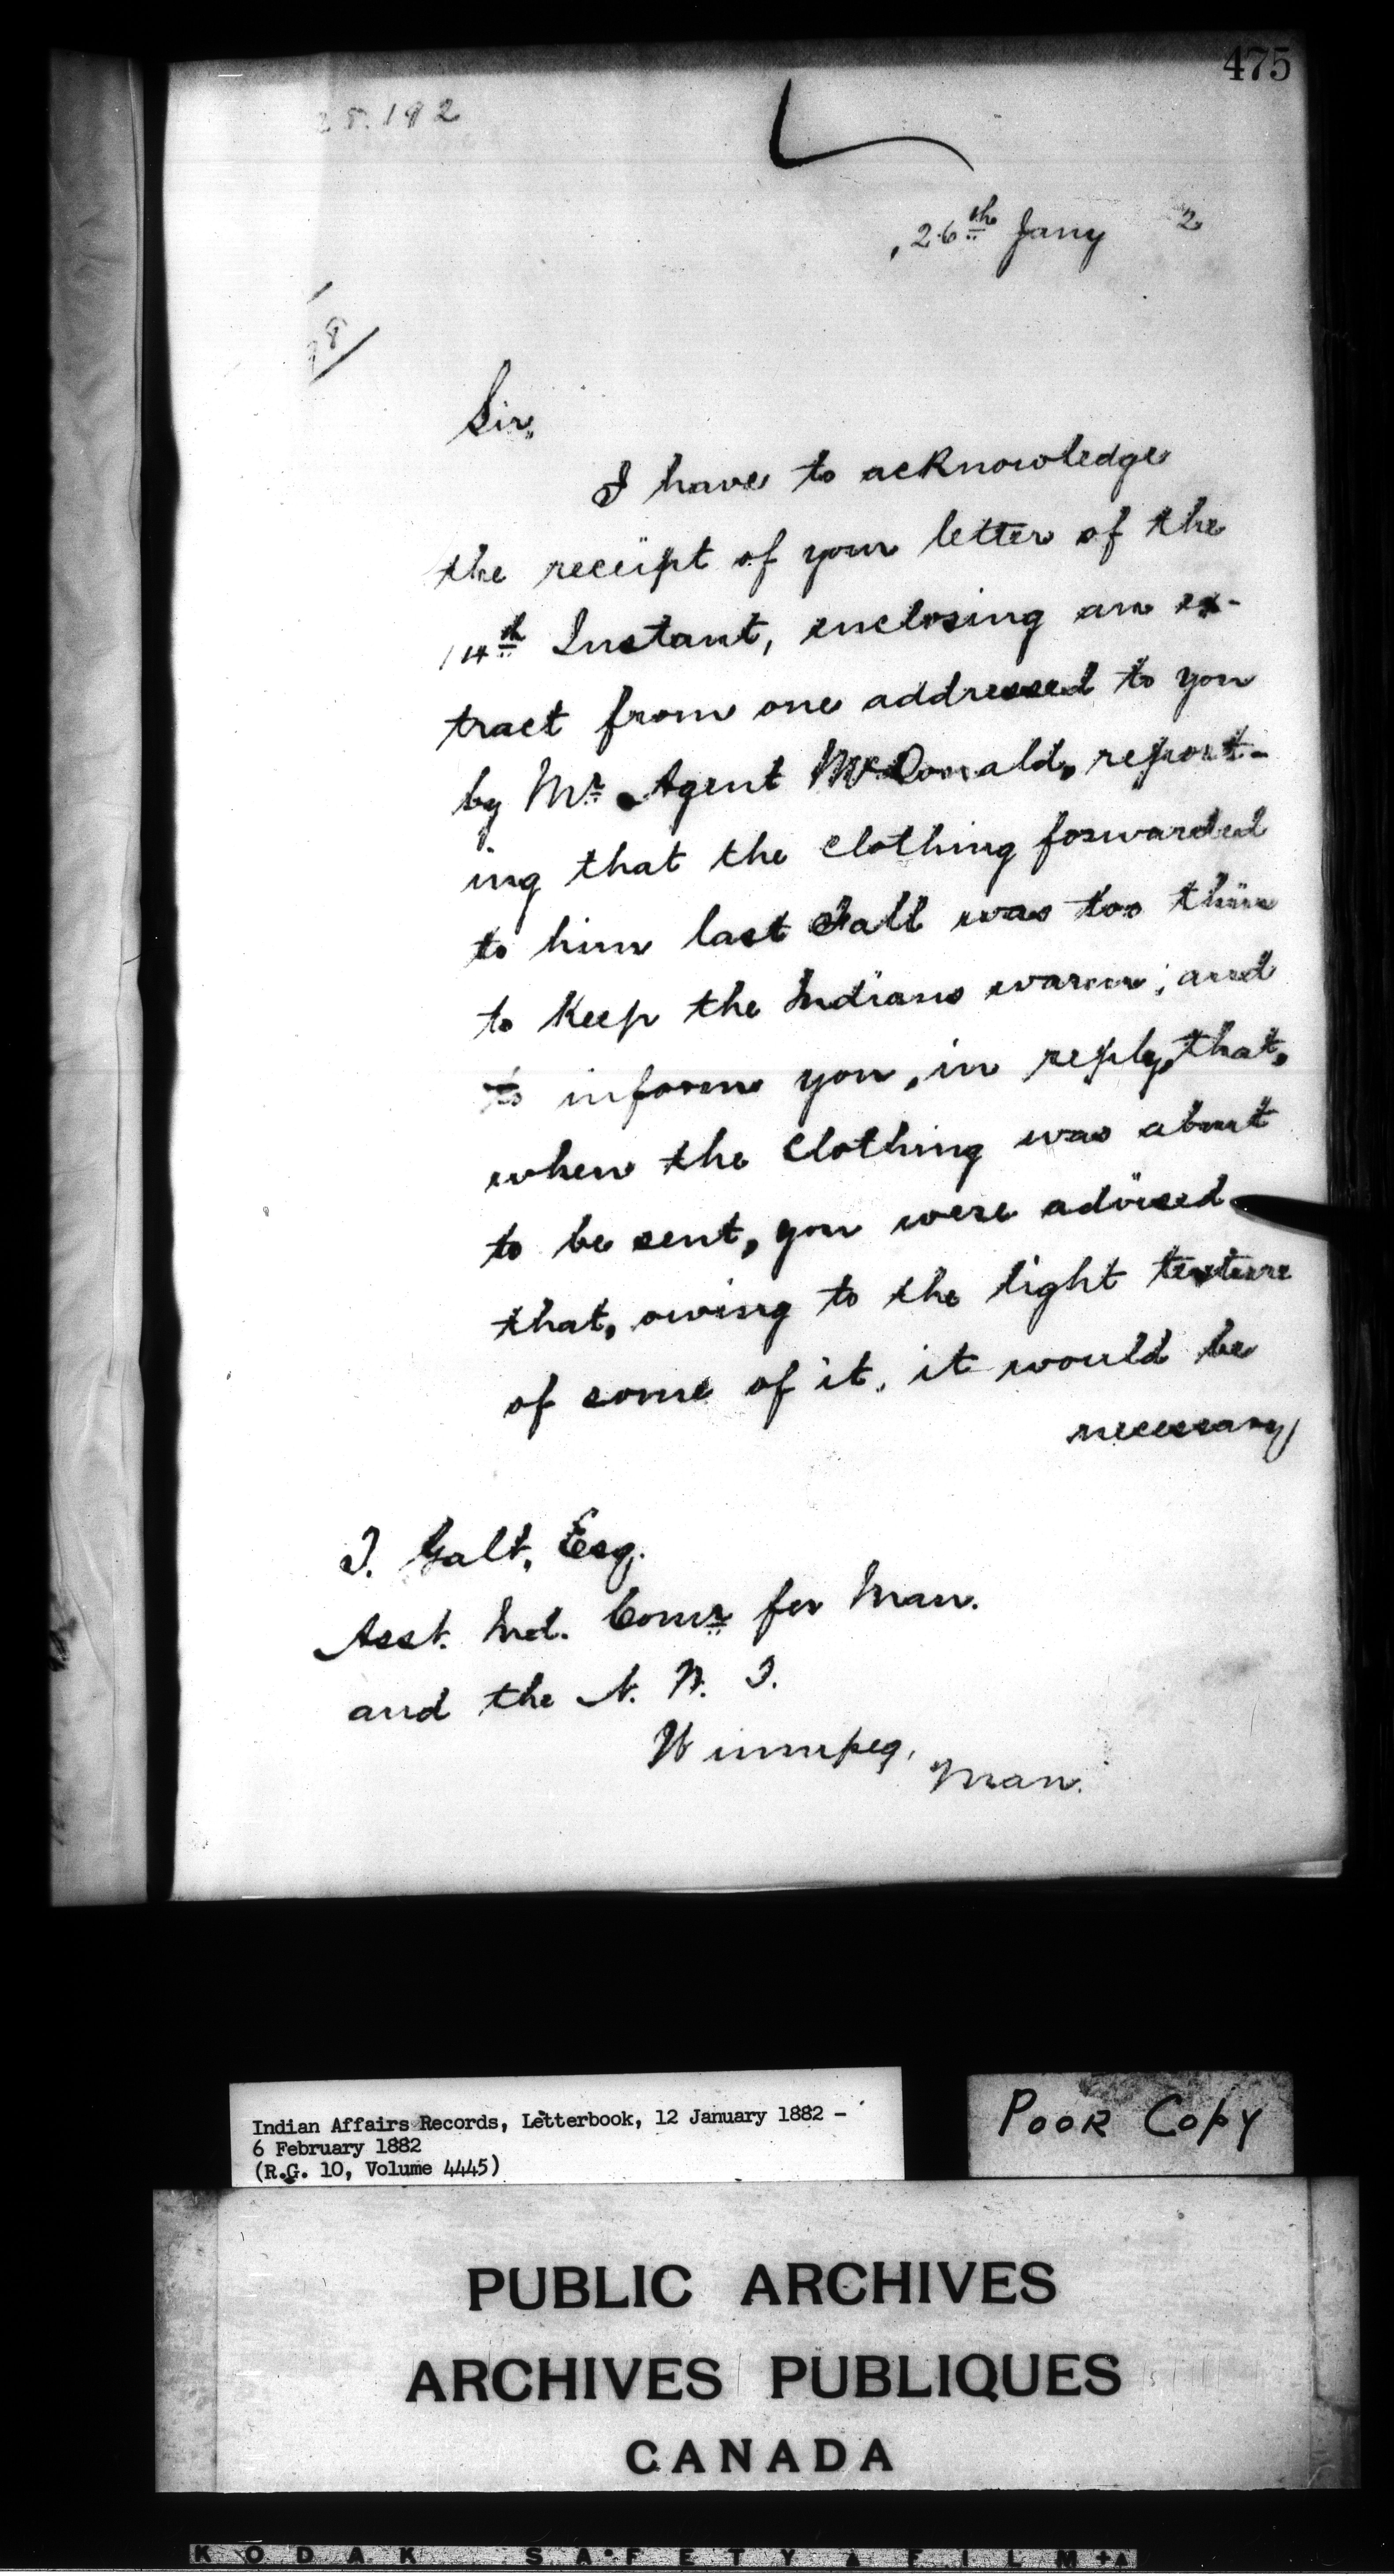 475
26th Jany 2
Sir,
I have to acknowledge
the receipt of your letter of the
14th Instant, enclosing an ex-
tract from one addressed to you
by Mr. Agent McDonald, report-
ing that the clothing forwarded
to him last Fall was too thin
to keep the Indians warm; and
to inform you, in reply, that,
when the clothing was about
to be sent, you were advised
that, owing to the light texture
of some of it, it would be
necessary
T. Galt, Esq.
Asst. Ind. Comr for Man.
and the N. W. T.
Winnipeg,
Man.
Indian Affairs Records, Letterbook, 12 January 1882 -
6 February 1882
(R.G. 10, Volume 4445)
Poor Copy
PUBLIC ARCHIVES
ARCHIVES PUBLIQUES
CANADA
KODAK SAFETY FILM